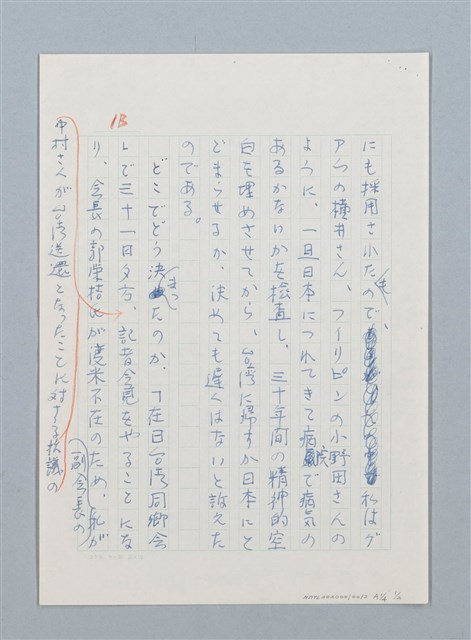 にも採用されたので、私はグ
アムの横井さん、フィリピンの小野田さんの
ように、一旦日本につれてきて病院で病気の
あるかないかを検査し、三十年間の精神的空
白を埋めさせてから、台湾に帰すか日本にと
どまらせるか、決めても遅くはないと訴えた
のである。
どこでどう決まったのか、「在日台湾同郷会
」で三十一日夕方、記者会見をやることにな
り、会長の郭栄桔氏が渡米不在のため、副会長の私が
中村さんが台湾送還となったことに対する抗議の
1B